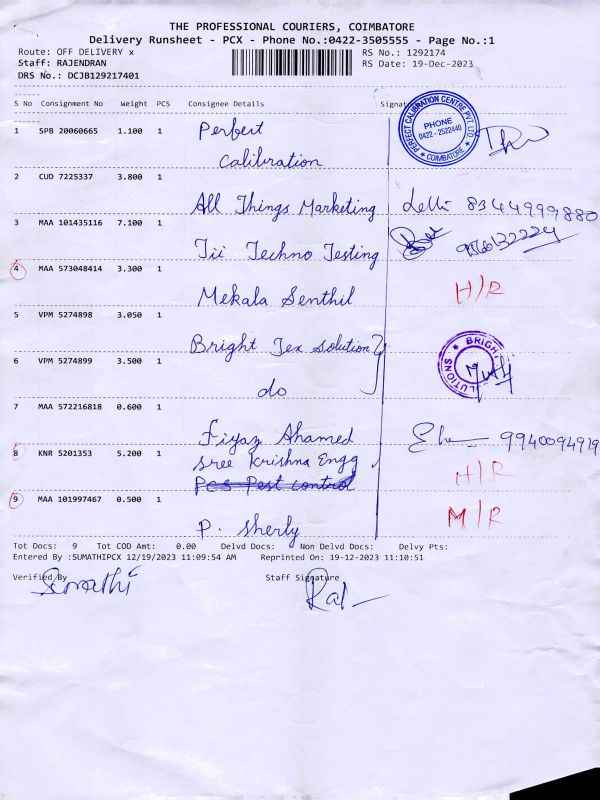 THE PROFESSIONAL COURIERS, COIMBATORE
Delivery Runsheet - PCX - Phone No.:0422-3505555 - Page No.:1
Route: OFF DELIVERY x RS No.: 1292174
Staff: RAJENDRAN RS Date: 19-Dec-2023
DRS No.: DCJB129217401
S No Consignment No Weight PCS Consignee Details Signat
PERFECT CALIBRATION CENTRE PVT. LTD. * COIMBATORE *
PHONE
0422 - 2522440
1 SPB 20060665 1.100 1 Perfect
Calibration
2 CUD 7225337 3.800 1
All Things Marketing 8344999880
3 MAA 101435116 7.100 1
Tii Techno Testing
4 MAA 573048414 3.300 1
Mekala Senthil H/R
5 VPM 5274898 3.050 1
Bright Tex Solution
6 VPM 5274899 3.500 1
do
BRIGH
LUTIONS
7 MAA 572216818 0.600 1
Fiyaz Ahamed 9940094919
8 KNR 5201353 5.200 1 Sree Krishna Engg H/R
Pcs Pest control
9 MAA 101997467 0.500 1 M/R
P. Sherly
Tot Docs: 9 Tot COD Amt: 0.00 Delvd Docs: Non Delvd Docs: Delvy Pts:
Entered By :SUMATHIPCX 12/19/2023 11:09:54 AM Reprinted On: 19-12-2023 11:10:51
Verified By Staff Signature
Sumathi